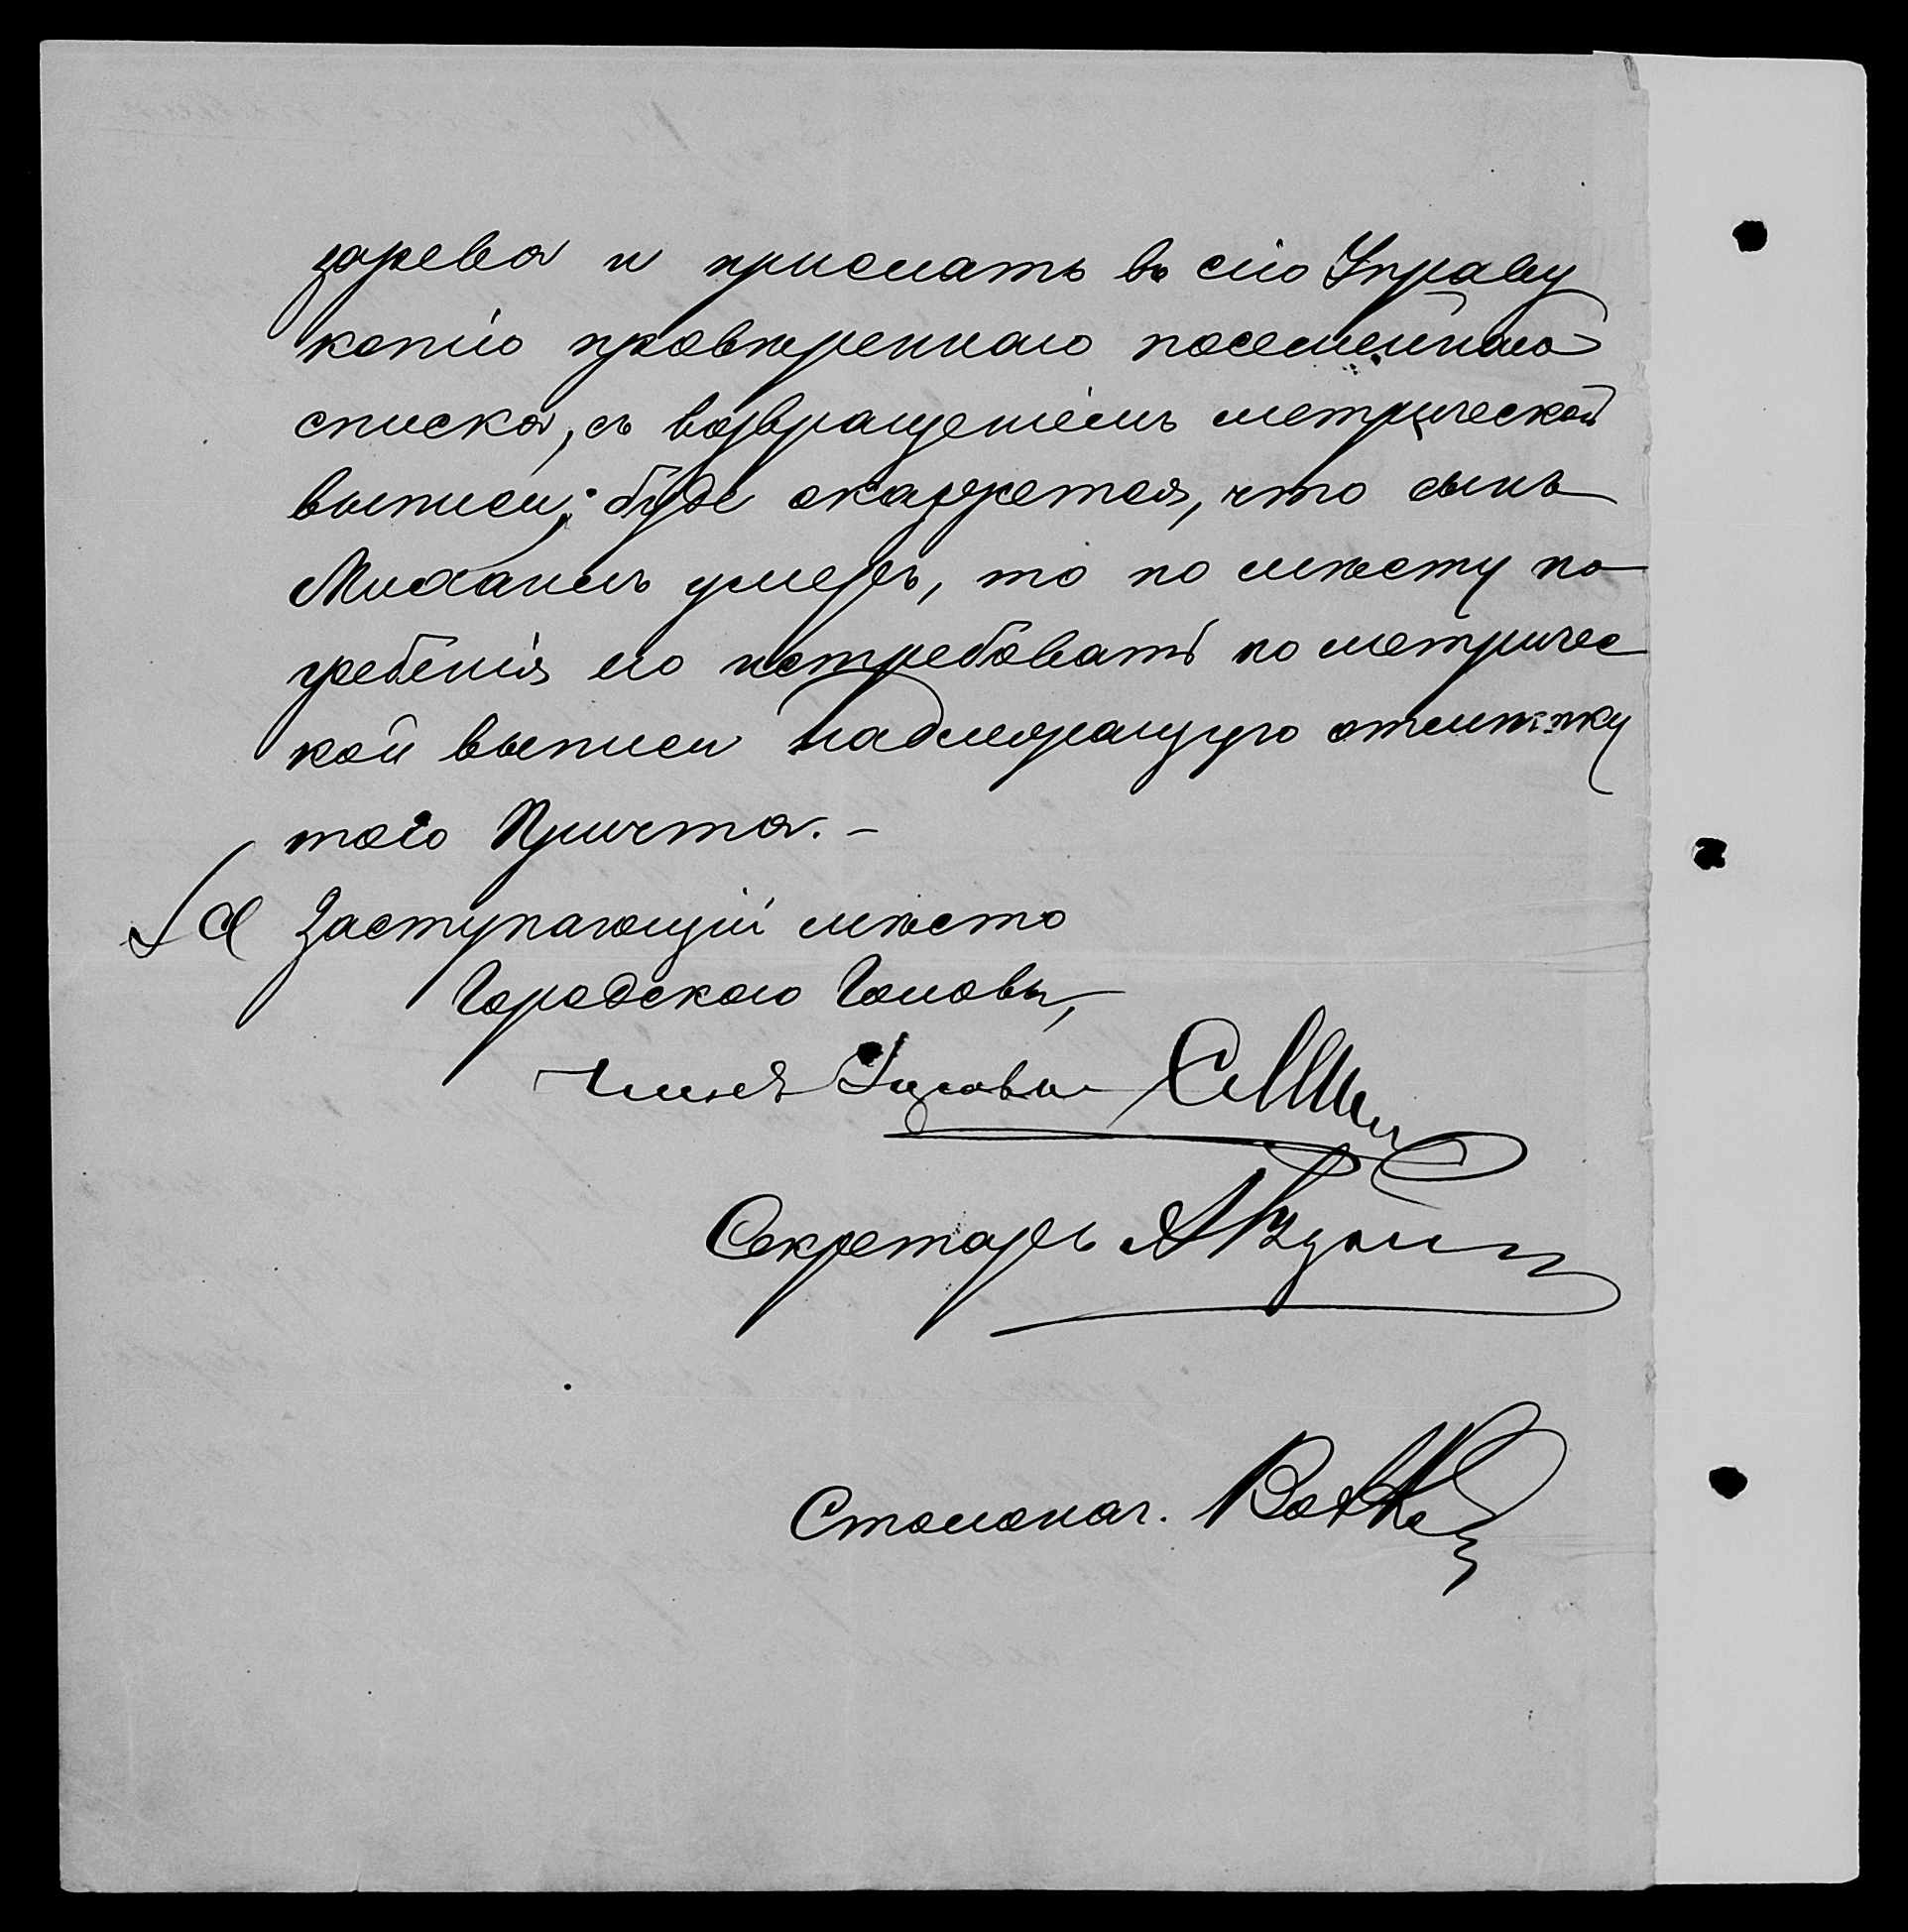 зарева и прислать въ сію Управу
копію провѣреннаго посемейнаго
списка, съ возвращеніемъ метрической
выписи; буде окажется, что сынъ
Михаилъ умеръ, то по мѣсту по
гребенія его истребовать по метричес
кой выписи надлежащую отмѣтку
того Причта. –
Заступающій мѣсто
Городского Головы,
Членъ Управы
Секретарь
Столонач.